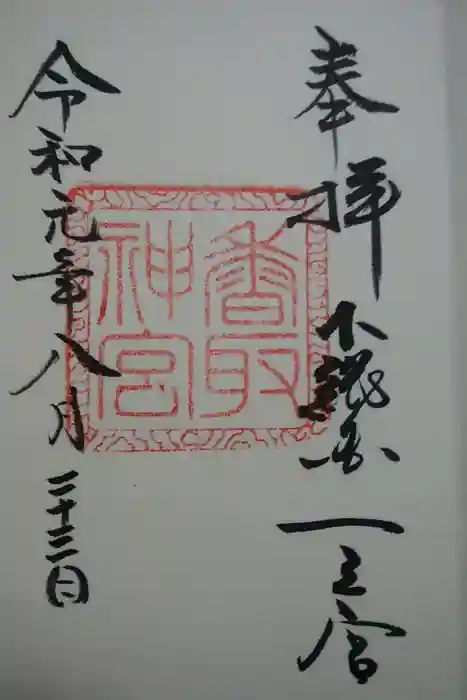 奉拝
下総国
一之宮
香取
神宮
令和元年八月二十三日